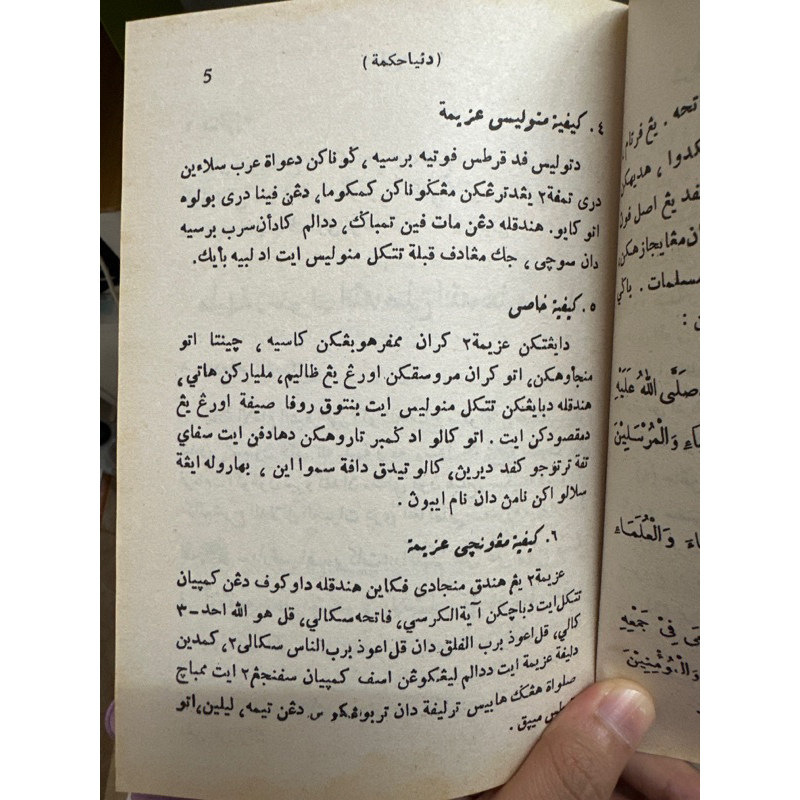 ( دنيا حكمة )
5
٤. كيفية منوليسي عزيمة
دتوليس فد قرطس فوتيه برسيه، ݢوناكن دعواة عرب سلاءين
دري تمفة٢ يڠدترڠكن مڠݢوناكن كمكوما، دڠن فينا دري بولوه
اتو كايو. هندقله دڠن مات فين تمباݢ، ددالم كادأن سرب برسيه
دان سوچي، جك مڠادف قبلة تتكل منوليس ايت اد لبيه بأيك.
٥. كيفية خاصي
دايڠتكن عزيمة٢ كران ممفرهوبڠكن كاسيه، چينتا اتو
منجأوهكن، اتو كران مروسقكن اورڠ يڠ ظاليم، ملياركن هاتي،
هندقله دبايڠكن تتكل منوليس ايت بنتوق روفا صيفة اورڠ يڠ
دمقصودكن ايت. اتو كالو اد ݢمبر تاروهكن دهادفن ايت سفاي
تفة ترتوجو كفد ديرين، كالو تيدق دافة سموا اين، بهاروله ايڠة
سلالو اكن نامن دان نام ايبون.
٦. كيفية مڠونچي عزيمة
عزيمة٢ يڠ هندق منجادي فكاين هندقله داوكوف دڠن كمپيان
تتكل ايت دباچكن آية الكرسي، فاتحه سكالي، قل هو الله احد – ٣
كالي، قل اعوذ برب الفلق دان قل اعوذ برب الناس سكالي٢، كمدين
دليفة عزيمة ايت ددالم ليڠكوڠن اسف كمپيان سفنجڠ٢ ايت ممباچ
صلواة هڠݢ هابيس ترليفة دان تربوڠكوس دڠن تيمه، ليلين، اتو
ميڤق.
تحه. يڠ فرتام
هديهكن
فد يڠ اصل فون
مسلمات. باݢي
صَلَّى اللهُ عَلَيْهِ
وَالْمُرْسَلِيْنَ
وَالْعُلَمَاءِ
فِيْ جَمْعِهِ